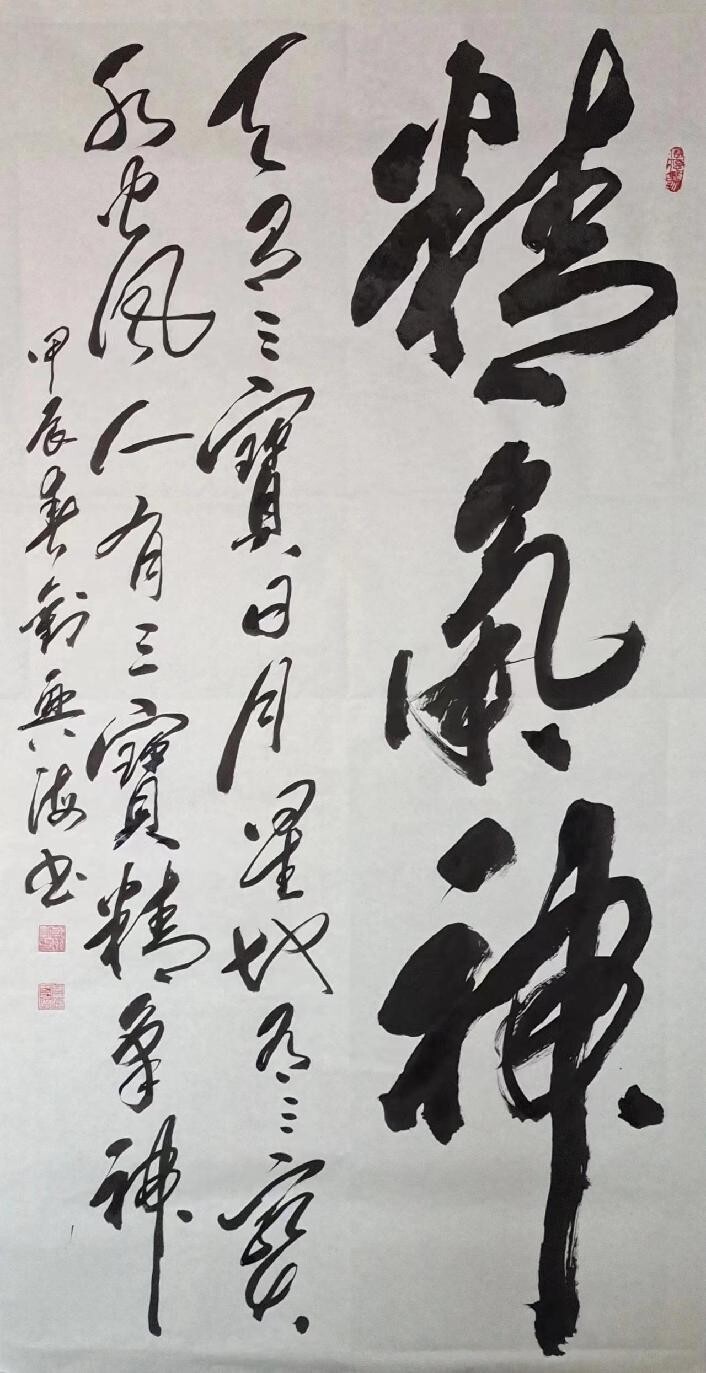 精氣神
天有三寶日月星地有三寶
水火風人有三寶精氣神
甲辰春劉興海书